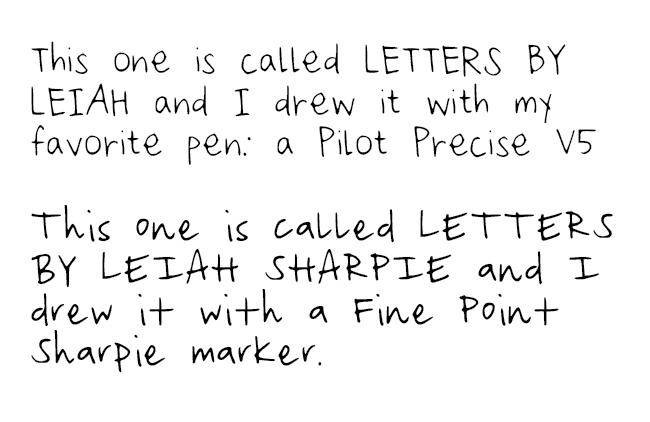 This one is called LETTERS BY
LEIAH and I drew it with my
favorite pen: a Pilot Precise V5
This one is called LETTERS
BY LEIAH SHARPIE and I
drew it with a Fine Point
Sharpie marker.